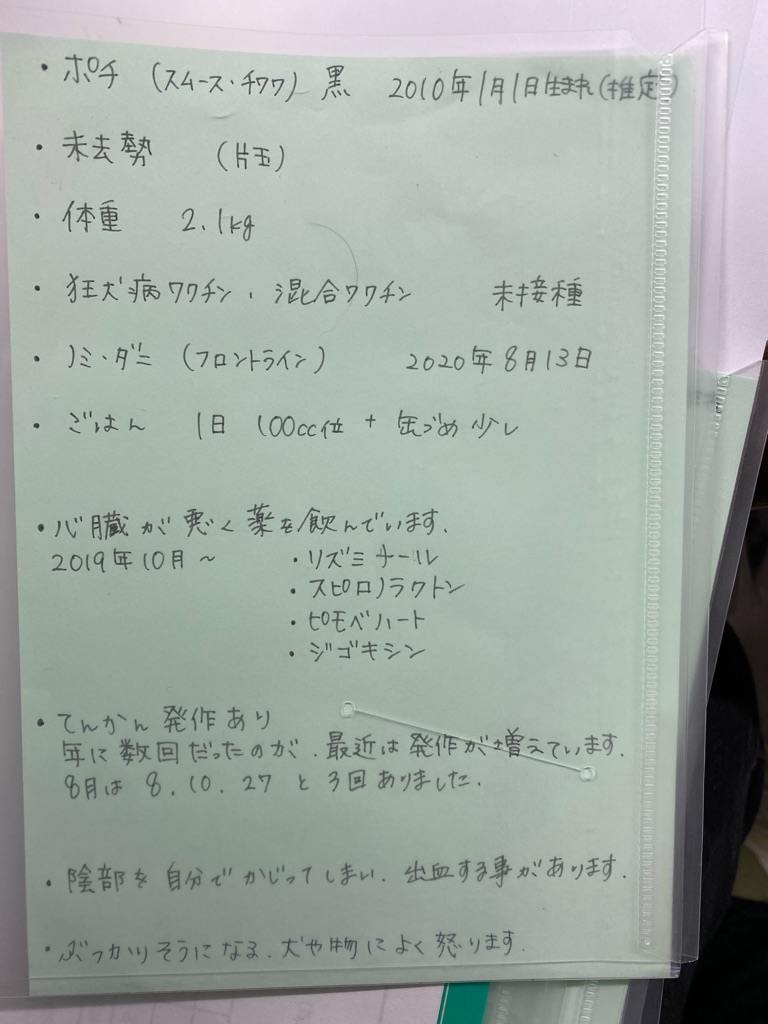 ・ポチ （スムース・チワワ） 黒 2010年1月1日生まれ（推定）
・未去勢 （片玉）
・体重 2.1kg
・狂犬病ワクチン、混合ワクチン 未接種
・ノミ・ダニ （フロントライン） 2020年8月13日
・ごはん 1日 100cc位 + 缶づめ少し
・心臓が悪く薬を飲んでいます.
2019年10月～ ・リズミナール
・スピロノラクトン
・ピモベハート
・ジゴキシン
・てんかん発作あり
年に数回だったのが、最近は発作が増えています.
8月は 8.10.27 と 3回ありました.
・陰部を自分でかじってしまい、出血する事があります.
・ぶつかりそうになる、犬や物によく怒ります.